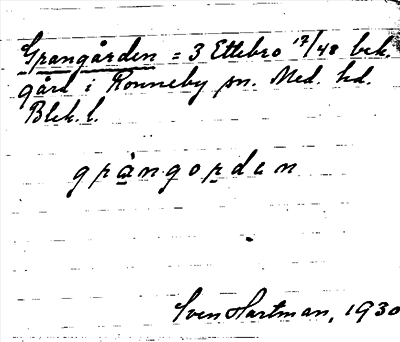 Grangården = 3 Ettebro 17/48 bek.
gård i Ronneby sn. Med. hd.
Blek. l.
gràngorden
Sven Hartman, 1930